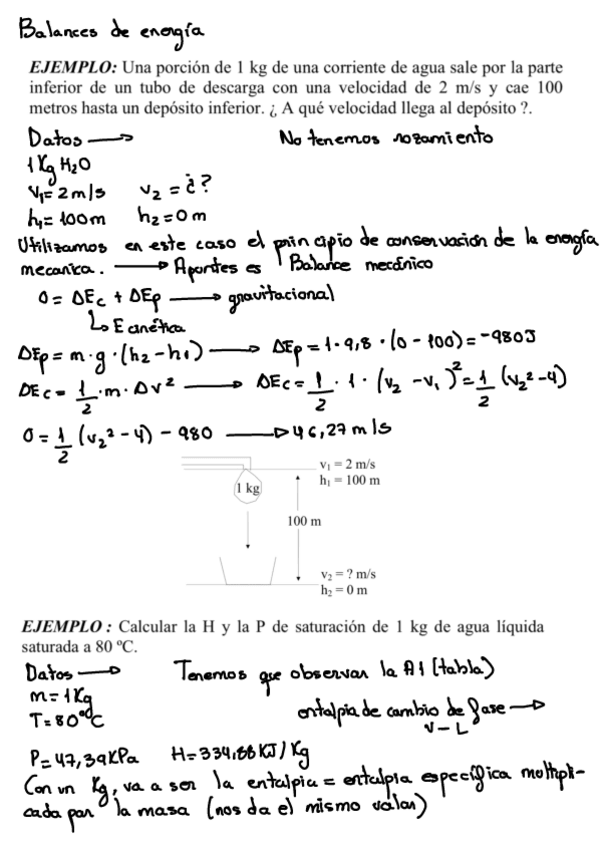 Balances de energía
EJEMPLO: Una porción de 1 kg de una corriente de agua sale por la parte
inferior de un tubo de descarga con una velocidad de 2 m/s y cae 100
metros hasta un depósito inferior. ¿ A qué velocidad llega al depósito ?.
Datos → No tenemos rozamiento
1 Kg H₂O
V₁= 2 m/s v₂ = ¿?
h₁= 100m h₂=0 m
Utilizamos en este caso el principio de conservación de la energía
mecanica. → Aportes es Balance mecánico
0= ΔEc + ΔEp → gravitacional
↳ E cinética
ΔEp = m·g·(h₂-h₁) → ΔEp = 1·9,8·(0-100) = -980J
ΔEc = 1/2·m·Δv² → ΔEc = 1/2·1·(v₂-v₁)² = 1/2 (v₂²-4)
0= 1/2 (v₂²-4) - 980 → 46,27 m/s
v₁ = 2 m/s
h₁ = 100 m
1 kg
100 m
v₂ = ? m/s
h₂ = 0 m
EJEMPLO : Calcular la H y la P de saturación de 1 kg de agua líquida
saturada a 80 ºC.
Datos → Tenemos que observar la A1 (tabla)
m = 1Kg
T= 80ºC entalpia de cambio de fase →
V-L
P= 47,39KPa H=334,88 KJ/Kg
Con un Kg, va a ser la entalpia = entalpia específica multipli-
cada por la masa (nos da el mismo valor)